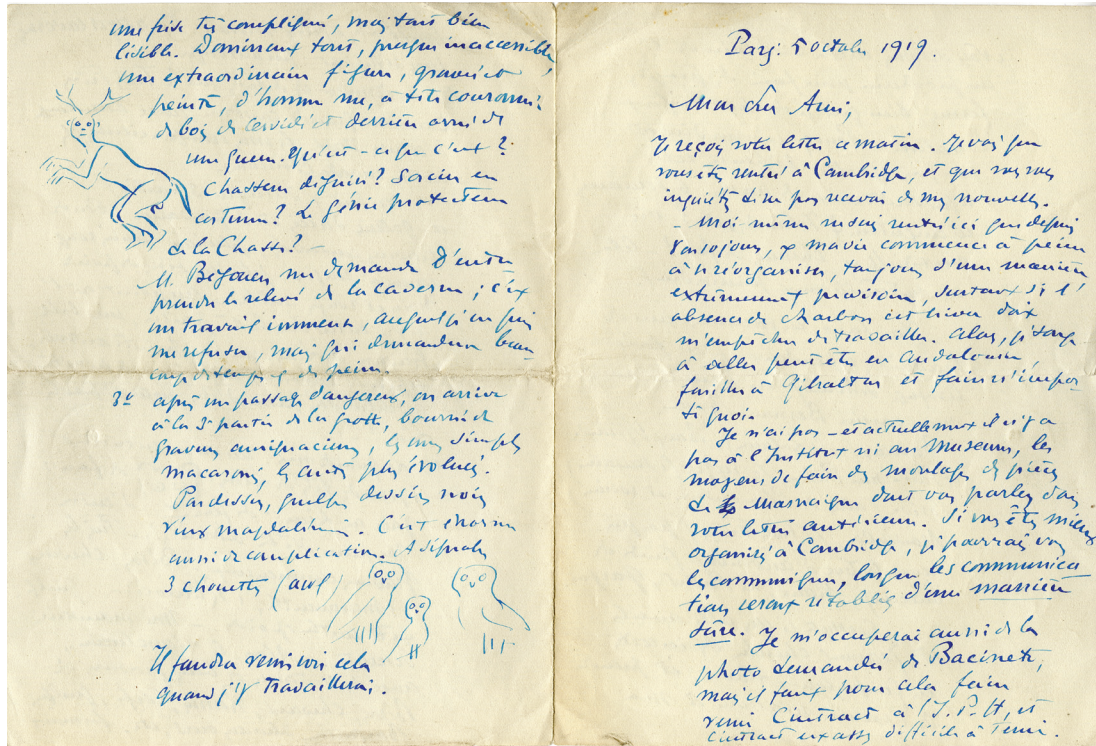 une frise très compliquée, mais tout bien
lisible. Dominant tout, presque inaccessible,
une extraordinaire figure, gravée et
peinte, d'homme nu, à tête couronnée
de bois de cervidé et derrière orné de
une queue. Qu'est-ce que c'est ?
Chasseur déguisé ? Sorcier en
costume ? Le génie protecteur
de la Chasse ? -
M. Bégouen me demande d'entre
prendre le relevé de la caverne ; c'est
un travail immense, auquel je ne puis
me refuser, mais qui demandera beau-
coup de temps et de peine.
3º après un passage dangereux, on arrive
à la 3e partie de la grotte, bourrée de
gravures aurignaciennes, les unes simples
macaroni, les autres plus évoluées.
Par dessus, quelques dessins noirs
vieux magdalénien. C'est énorme
aussi de complication. A signaler
3 chouettes (owl)
Il faudra venir voir cela
quand j'y travaillerai.
Paris 5 octobre 1919.
Mon cher Ami,
Je reçois votre lettre ce matin. Je vois que
vous êtes rentré à Cambridge, et que vous vous
inquiétez de ne pas recevoir de mes nouvelles.
- Moi-même ne suis rentré ici que depuis
jours, et ma vie commence à peine
à se réorganiser, toujours d'une manière
extrêmement provisoire, surtout si l'
absence de charbon cet hiver doit
m'empêcher de travailler. Alors, je songe
à aller peut être en Andalousie,
fouiller à Gibraltar et faire n'impor
te quoi.
Je n'ai pas - et actuellement il n'y a
pas à l'Institut ni au Museum, les
moyens de faire des moulages des pièces
de Masnaigre dont vous parlez dans
votre lettre antérieure. Si vous êtes mieux
organisé à Cambridge, je pourrais vous
les communiquer, lorsque les communica
tions seront rétablies d'une manière
sûre. Je m'occuperai aussi de la
photo demandée de
mais il faut pour cela faire
venir Cintract à l'I.P.H, et
Cintract est assez difficile à tenir.